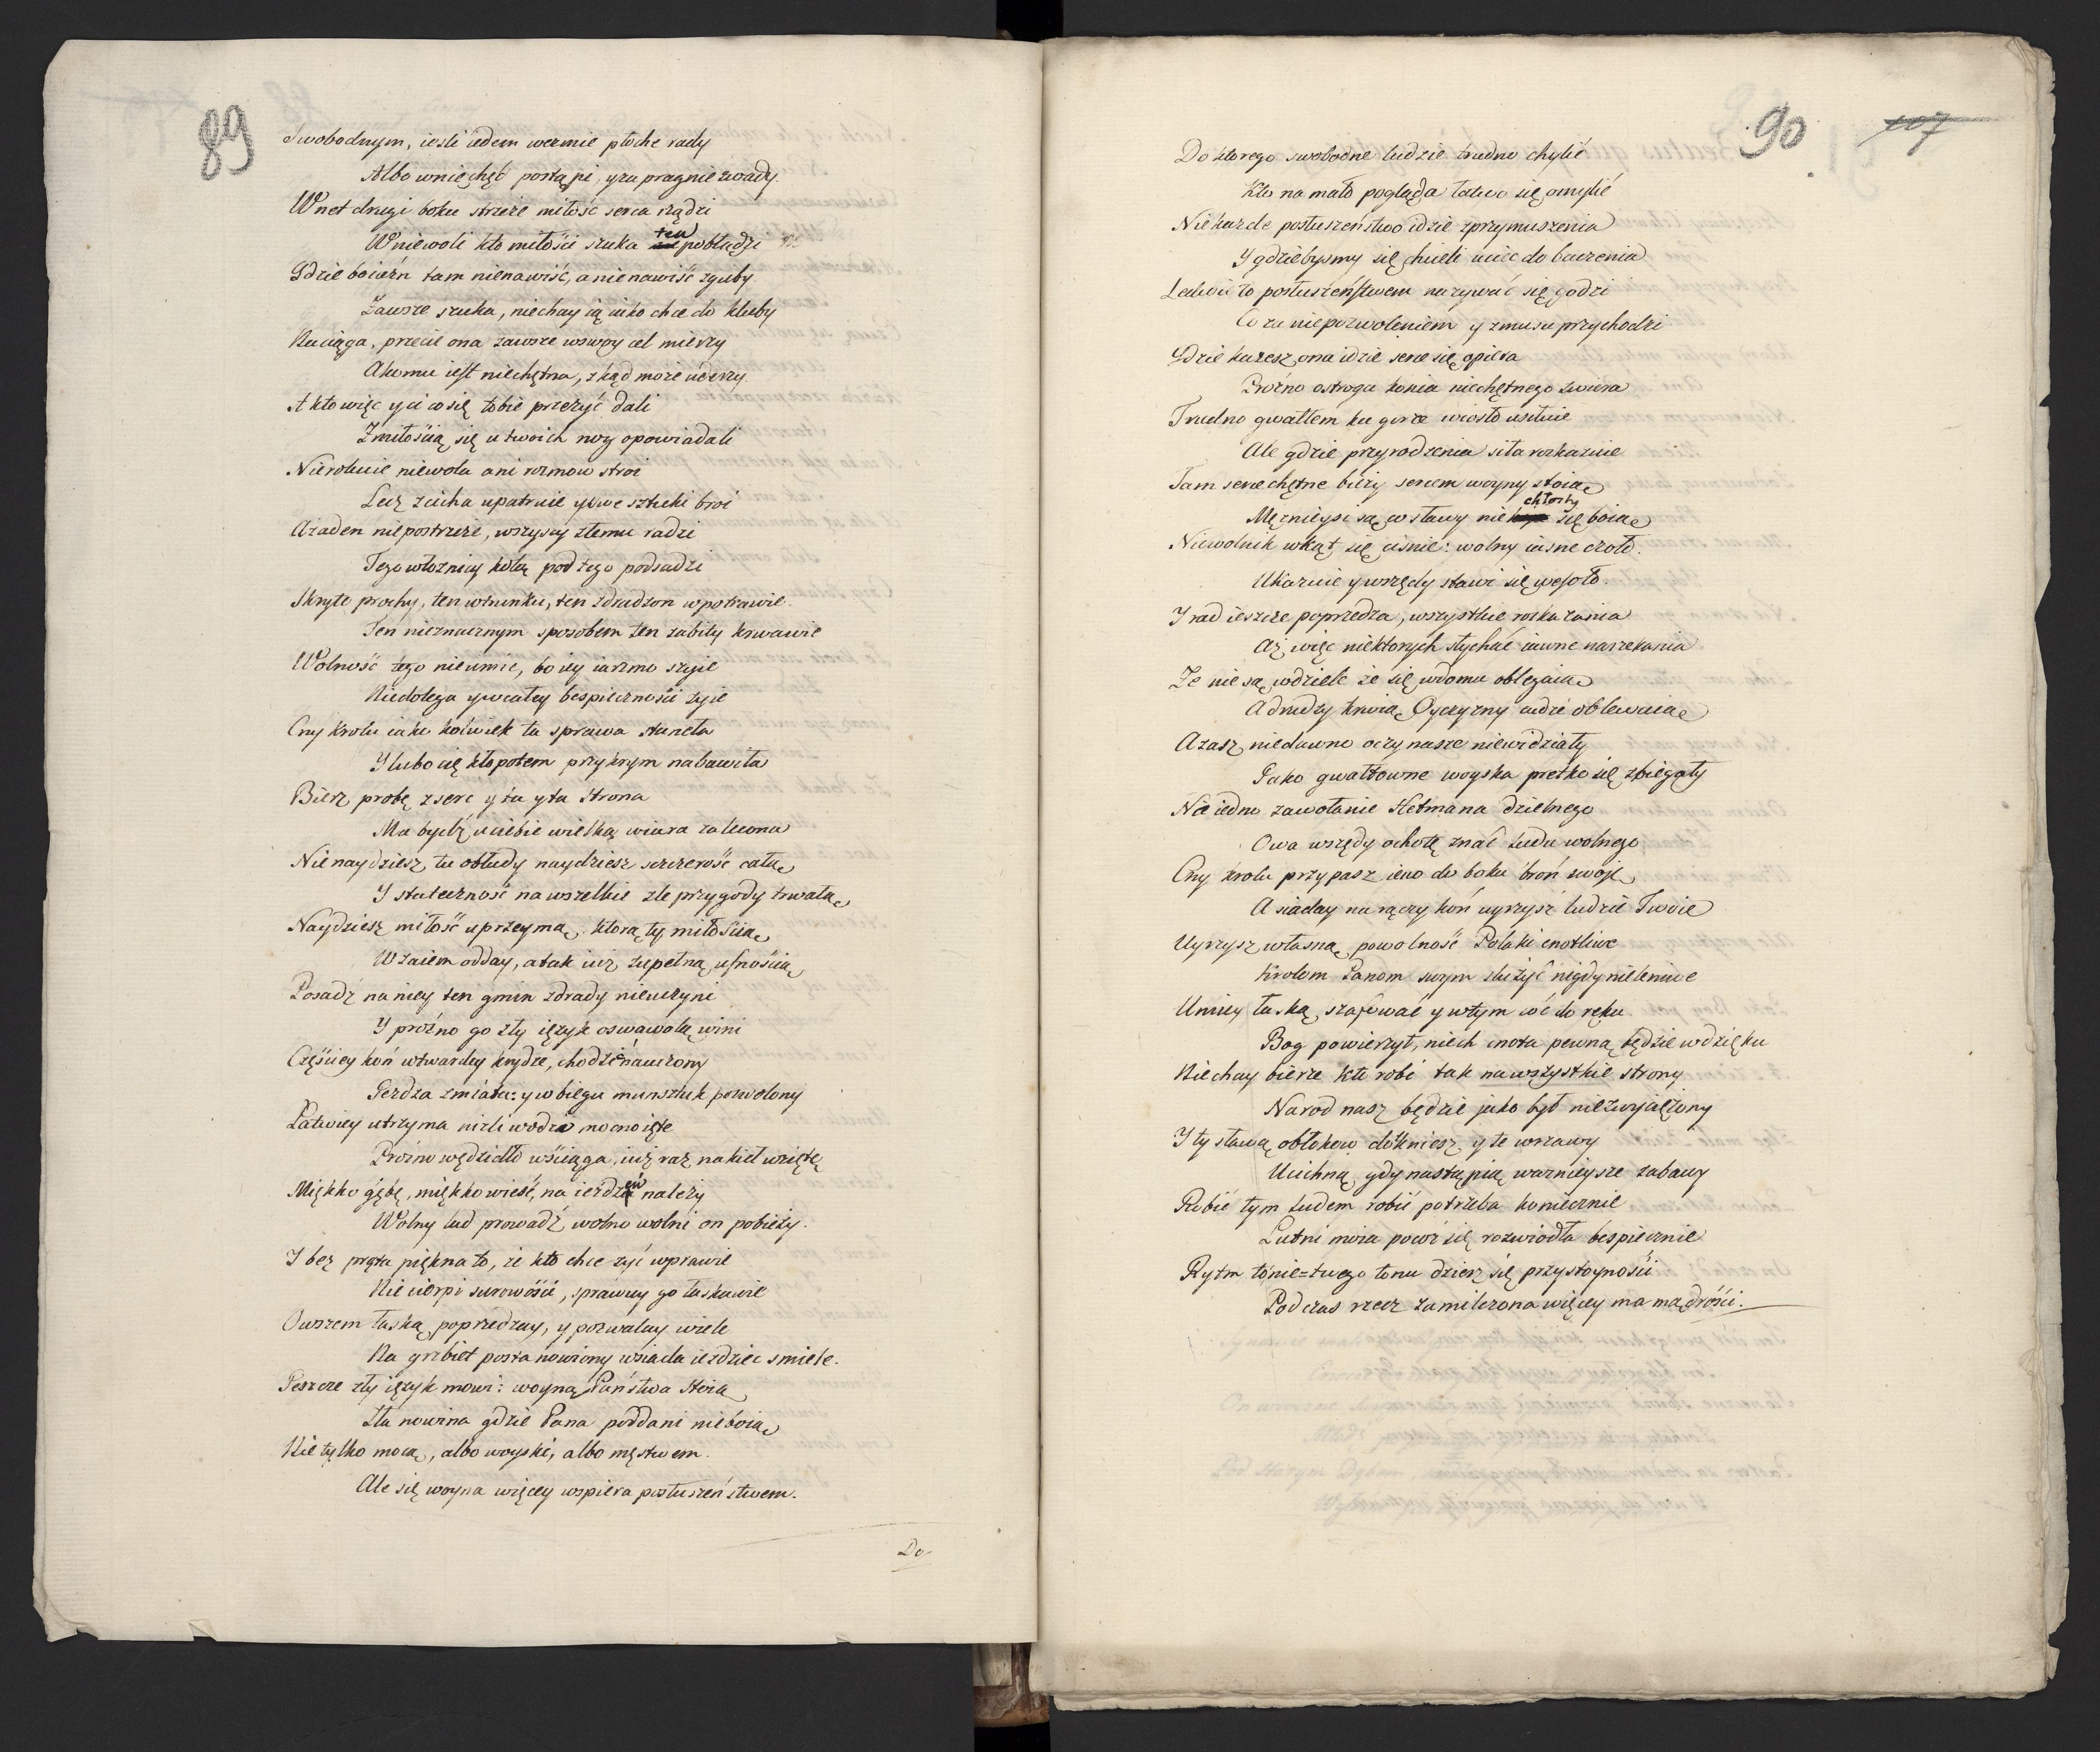 89
Swobodnym, iesli ieden wezmie płoche rady
Albo wniechęć postąpi, yza pragnie zwady.
Wnet drugi boku strzeże miłość serca rządzi
Wniewoli kto miłości szuka ten pobłądzi
Gdzie boiaźn tam nienawiść, a nienawiść zguby
Zawsze szuka, niechay ią iako chce do kluby
Naciąga, przecie ona zawsze wswoy cel mierzy
A komu iest niechętna, zkąd może uderzy.
A kto więc yci co się tobie przeżyć dali
Zmiłością się u twoich nog opowiadali
Nierokuie niewola ani rozmow stroi
Lecz zcicha upatruie yswe sztuki broi
Ażaden niepostrzeże, wszyscy złemu radzi
Tego włożnicy kolą pod tego podsadzi
Skryte prochy, ten wtrunku, ten zdradzon wpotrawie.
Ten nieznacznym sposobem ten zabity krwawie
Wolność tego nieumie, bo iey iarzmo szyie
Niedolega ywcałey bespieczności żyie
Cny Krolu iako kolwiek ta sprawa stanęła
Y lubo cię kłopotem przykrym nabawiła
Bierz probę zserc y ta yta strona
Ma bydź uciebie wielką wiara zalecona
Nienaydziesz tu obłudy naydziesz szczerość całą
Y stateczność na wszelkie złe przygody trwałą
Naydziesz miłość uprzeymą, ktorą ty miłością
Wzaiem odday, atak iuż zupełną ufnością
Posadź na niey ten gmin zdrady nieuczyni
Y prożno go zły ięzyk oswawolą wini
Częściey koń wtwardey krydze, chodzić nauczony
Jezdza zmiata: y wbiegu munsztuk pozwolony
Łatwiey utrzyma niżli wodze mocno ięte
Prożno wędzidło wściąga, iuż raz nakieł wzięte
Miękko gębę, miękko wieść, na ieźdzcu należy
Wolny lud prowadź wolno wolni on pobieży.
I bez pręta piękna to, że kto chce żyć wprawie
Nie cierpi surowości, sprawuy go łaskawie
Owszem łaską poprzedzay, y pozwalay wiele
Na grzbiet postanowiony wsiada ieździec smiele.
Jeszcze zły ięzyk mowi: woyną Państwa stoią
Zła nowina gdzie Pana poddani nieboią
Nie tylko mocą, albo woyski, albo męstwem.
Ale się woyna więcey wspiera posłuszeństwem.
Do
90
107
Do ktorego swobodne ludzie trudno chylić
Kto na mało pogląda łatwo się omylić
Niekażde posłuszeństwo idzie zprzymuszenia
Y gdziebysmy się chcieli uciec do baczenia
Ledwie to posłuszeństwem nazywać się godzi
Co za niepozwoleniem y zmusu przychodzi
Gdzie każesz ona idzie serce się opiera
Prożno ostroga konia niechętnego zwiera
Trudno gwałtem ku gorze wiosło usiłuie
Ale gdzie przyrodzenia siła rozkazuie
Tam serce chętne bieży sercem woyny stoią
Mężnieysi są co sławy nie chłosty się boią
Niewolnik wkąt się ciśnie: wolny iasne czoło.
Ukazuie ywszędy stawi się wesoło.
Y rad ieszcze poprzedza, wszystkie roskazania
Aż więc niektorych słychać iawne narzekania
Ze nie są wdziele że się wdomu oblegaią
A drudzy krwią Oyczyzny ludzi oblewaią
Azasz niedawno oczy nasze niewidziały
Jako gwałtowne woyska prętko się zbiegały
Na iedno zawołanie Hetmana dzielnego
Owa wszędy ochotę znać ludu wolnego
Cny Krolu przypasz ieno do boku broń swoję
A siaday na rączy koń uyrzysz ludzie Twoie
Uyrzysz własną powolność Polaki cnotliwe
Krolom Panom swym służyć nigdy nieleniwe
Umiey łaską szafować y wtym coć do ręku
Bog powierzył, niech cnota pewną będzie wdzięku
Niechay bierze kto robi tak nawszystkie strony
Narod nasz będzie jako był niezwyciężony
Y ty sławą obłokow dotkniesz y te wrzawy
Ucichną, gdy nastąpią ważnieysze zabawy
Robić tym ludem robić potrzeba koniecznie
Lutni moia powiś się rozwiodła bespiecznie
Rytm to nie=twego tonu dzierz się przystoyności
Podczas rzecz zamilczona więcey ma mądrości.